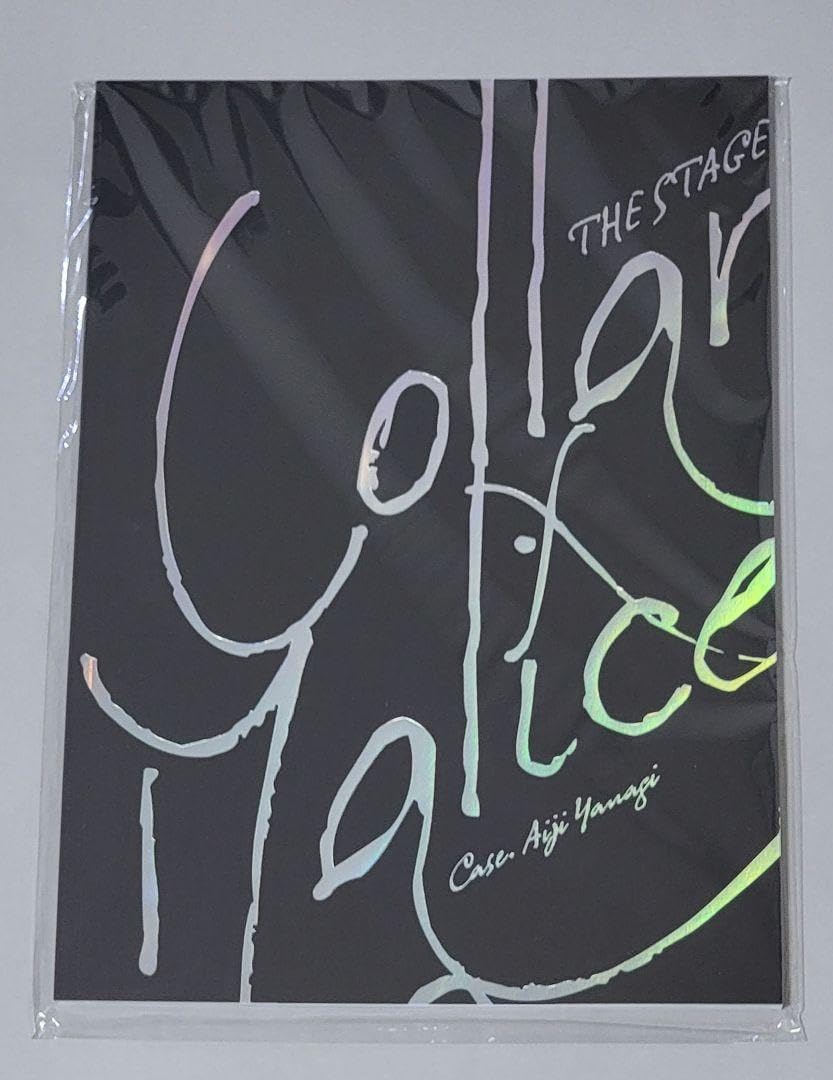 THE STAGE
Collar
Malice
Case. Aiji Yanagi